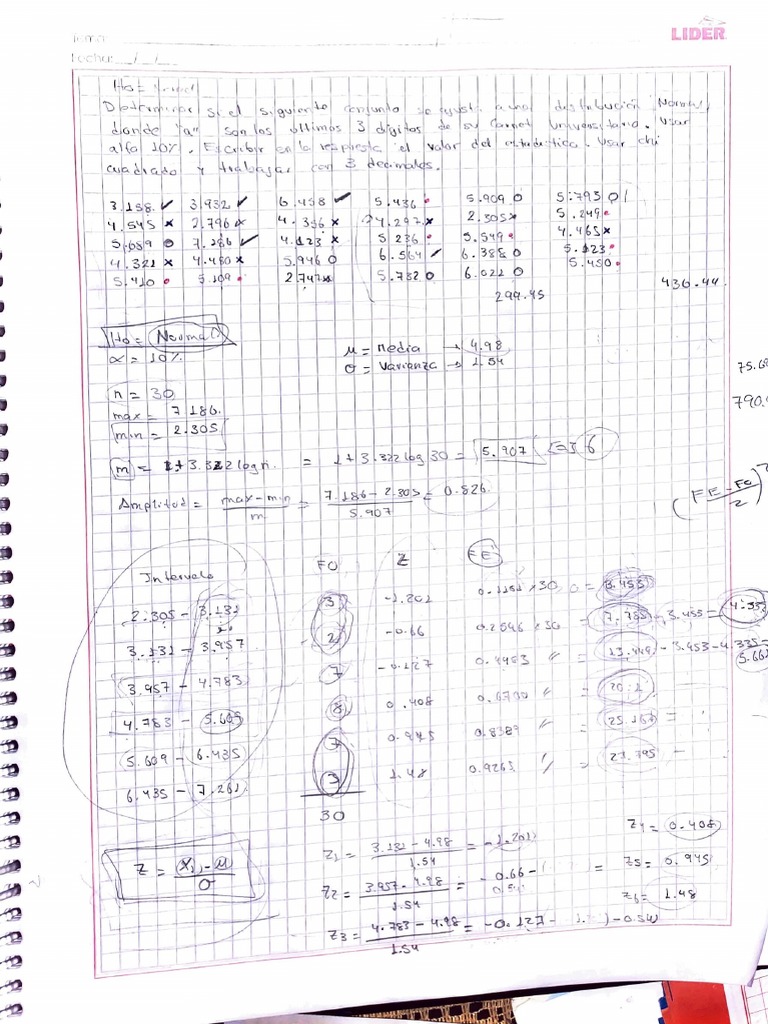 LIDER
Fecha: / /
Ho = Normal
Determinar si el siguiente conjunto se ajusta a una distribución Normal,
donde "a" son los últimos 3 dígitos de su Carnet Universitario. Usar
alfa 10%. Escribir en la respuesta el valor del estadístico. Usar chi
cuadrado y trabajar con 3 decimales.
3.158 3.932 6.458 5.436 5.909 5.793
4.545 2.796 4.356 4.297 2.305 5.249
5.659 7.186 4.123 5.236 5.549 4.465
4.321 4.480 5.946 6.564 6.388 5.123
5.410 5.109 2.747 5.732 6.021 5.450
299.45
436.44
Ho = Normal
α = 10%
μ = media → 4.98
σ = varianza → 1.54
n = 30
max = 7.186
min = 2.305
m = 1+3.322 log n = 1+3.322 log 30 = 5.907 6
Amplitud = max-min / m = 7.186 - 2.305 / 5.907 = 0.826
Intervalo FO Z FE
2.305 - 3.131 3 -1.201 0.1151 x 30 = 3.453
3.131 - 3.957 2 -0.66 0.2546 x 30 = 7.785 - 3.455 = 4.335
3.957 - 4.783 7 -0.127 0.4483 " = 13.449 - 3.453 - 4.335
4.783 - 5.609 8 0.408 " = 20.1
5.609 - 6.435 7 0.945 0.8389 " = 25.167 =
6.435 - 7.261 3 1.48 0.9265 " = 27.795 -
30
Z = (Xi) - μ / σ
Z1 = 3.131 - 4.98 / 1.54 = -1.201
Z2 = 3.957 - 4.98 / 1.54 = -0.66
Z3 = 4.783 - 4.98 / 1.54 = -0.127
Z4 = 0.408
= Z5 = 0.945
Z6 = 1.48